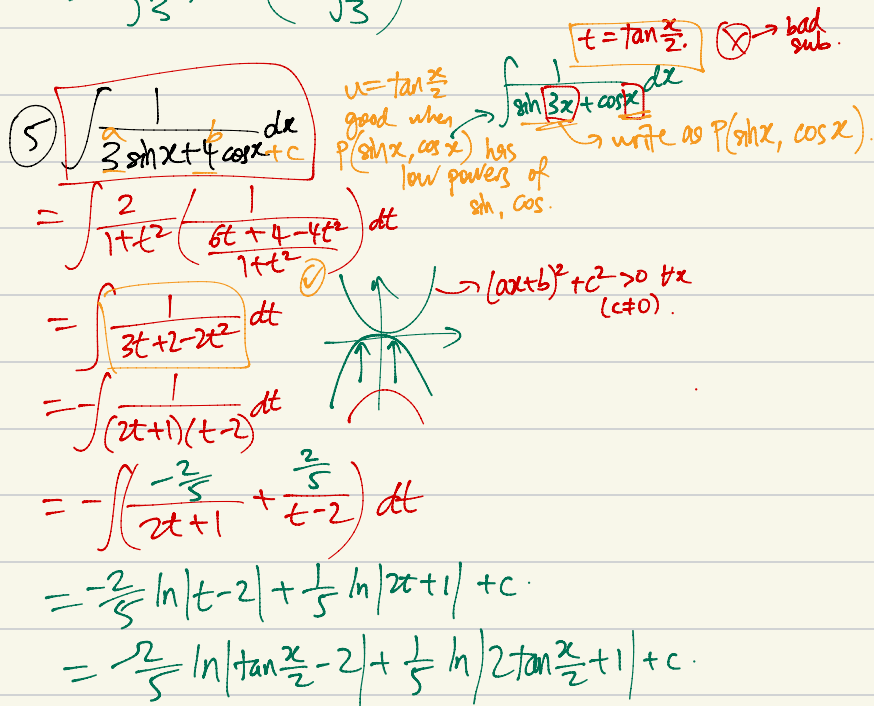 √3 √3
t = tan x/2. ⊗ → bad sub.
⑤ ∫ 1/(3 sin x + 4 cos x + c) dx
a b
u = tan x/2
good when
P(sin x, cos x) has
low powers of
sin, cos.
∫ 1/(sin 3x + cos x) dx
→ write as P(sin x, cos x).
= ∫ 2/(1+t²) (1/((6t + 4 − 4t²)/(1+t²))) dt
= ∫ 1/(3t + 2 − 2t²) dt
→ (ax+b)² + c² > 0 ∀x
(c≠0).
= −∫ 1/((2t+1)(t−2)) dt
= −∫ ((−2/5)/(2t+1) + (2/5)/(t−2)) dt
= −2/5 ln|t−2| + 1/5 ln|2t+1| + c.
= −2/5 ln|tan x/2 − 2| + 1/5 ln|2tan x/2 + 1| + c.